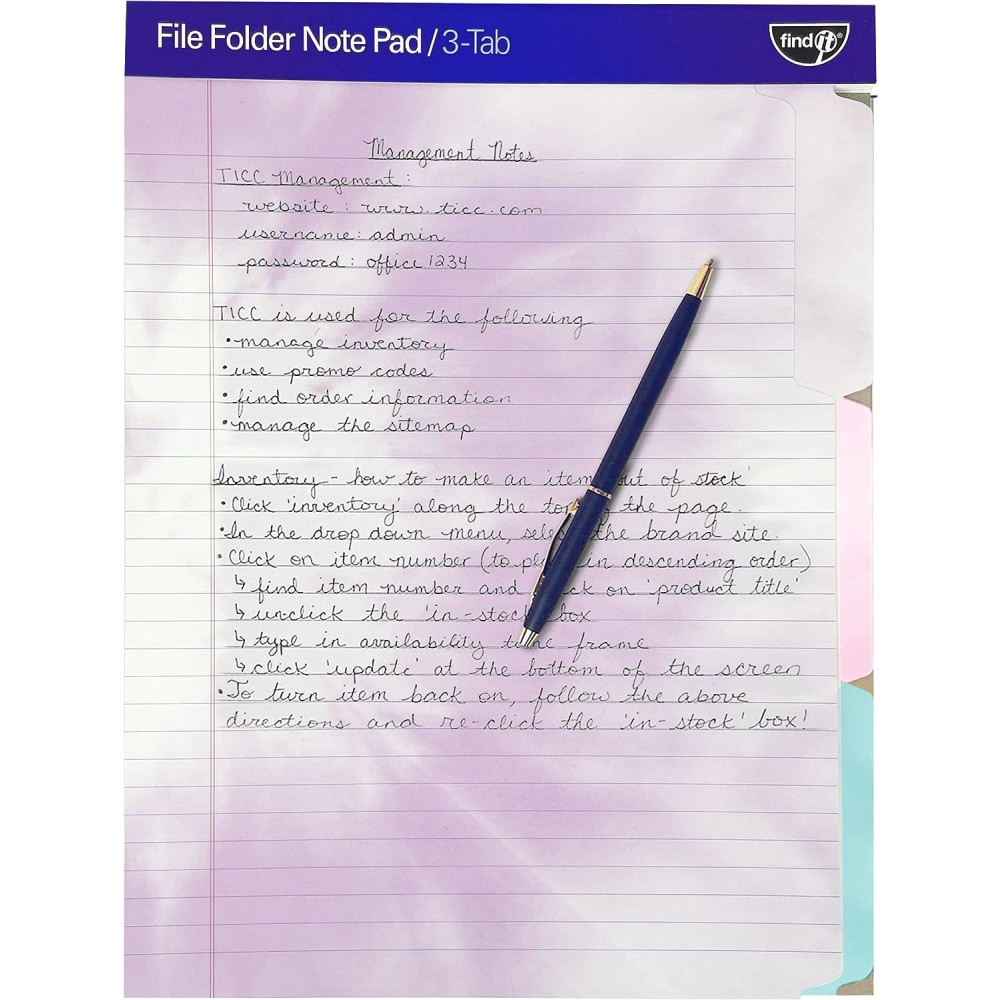 File Folder Note Pad / 3-Tab
find it®
Management Notes
TICC Management:
website: www.ticc.com
username: admin
password: office1234
TICC is used for the following
• manage inventory
• use promo codes
• find order information
• manage the sitemap
Inventory - how to make an item out of stock'
• Click 'inventory' along the top the page.
• In the drop down menu, the brand site.
• Click on item number (to in descending order)
↳ find item number and on 'product title'
↳ unclick the 'in-stock box
↳ type in availability time frame
↳ click 'update' at the bottom of the screen
• To turn item back on, follow the above
directions and re-click the 'in-stock' box!